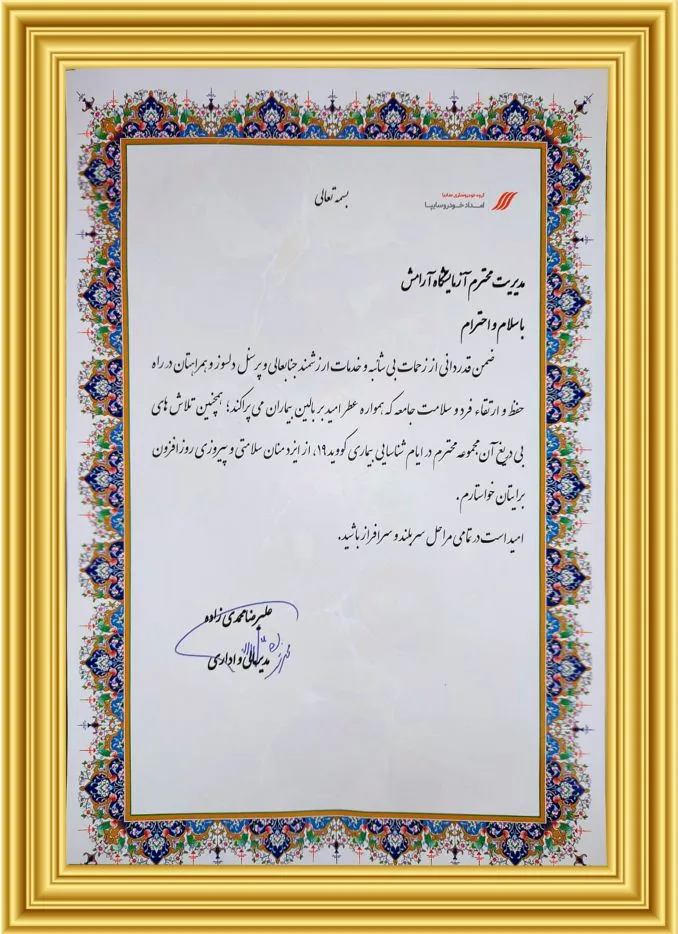 بسمه تعالی
گروه خودروسازی سایپا
امداد خودرو سایپا
مدیریت محترم آزمایشگاه آرامش
با سلام و احترام
ضمن قدردانی از زحمات بی شائبه و خدمات ارزشمند جنابعالی و پرسنل دلسوز و همراهتان در راه
حفظ و ارتقاء فرد و سلامت جامعه که همواره عطر امید بر بالین بیماران می پراکند؛ همچنین تلاش های
بی دریغ آن مجموعه محترم در ایام شناسایی بیماری کووید ۱۹، از ایزد منان سلامتی و پیروزی روز افزون
برایتان خواستارم.
امید است در تمامی مراحل سربلند و سرافراز باشید.
علیرضا محمدی زاده
مدیر مالی و اداری